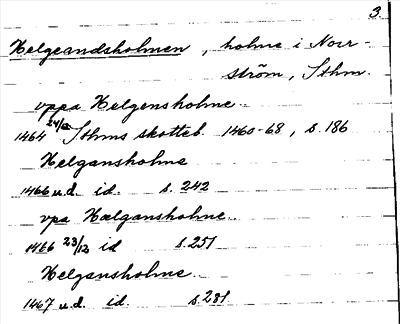 3.
Helgeandsholmen, holme i Norr-
ström, Sthm.
uppa Helgensholme
1464 24/12 Sthms skotteb. 1460-68, s. 186
Helgansholme
1466 u.d. id. s. 242
vpa Hælgansholme
1466 23/12 id s. 251
Helgansholme
1467 u.d. id. s. 281